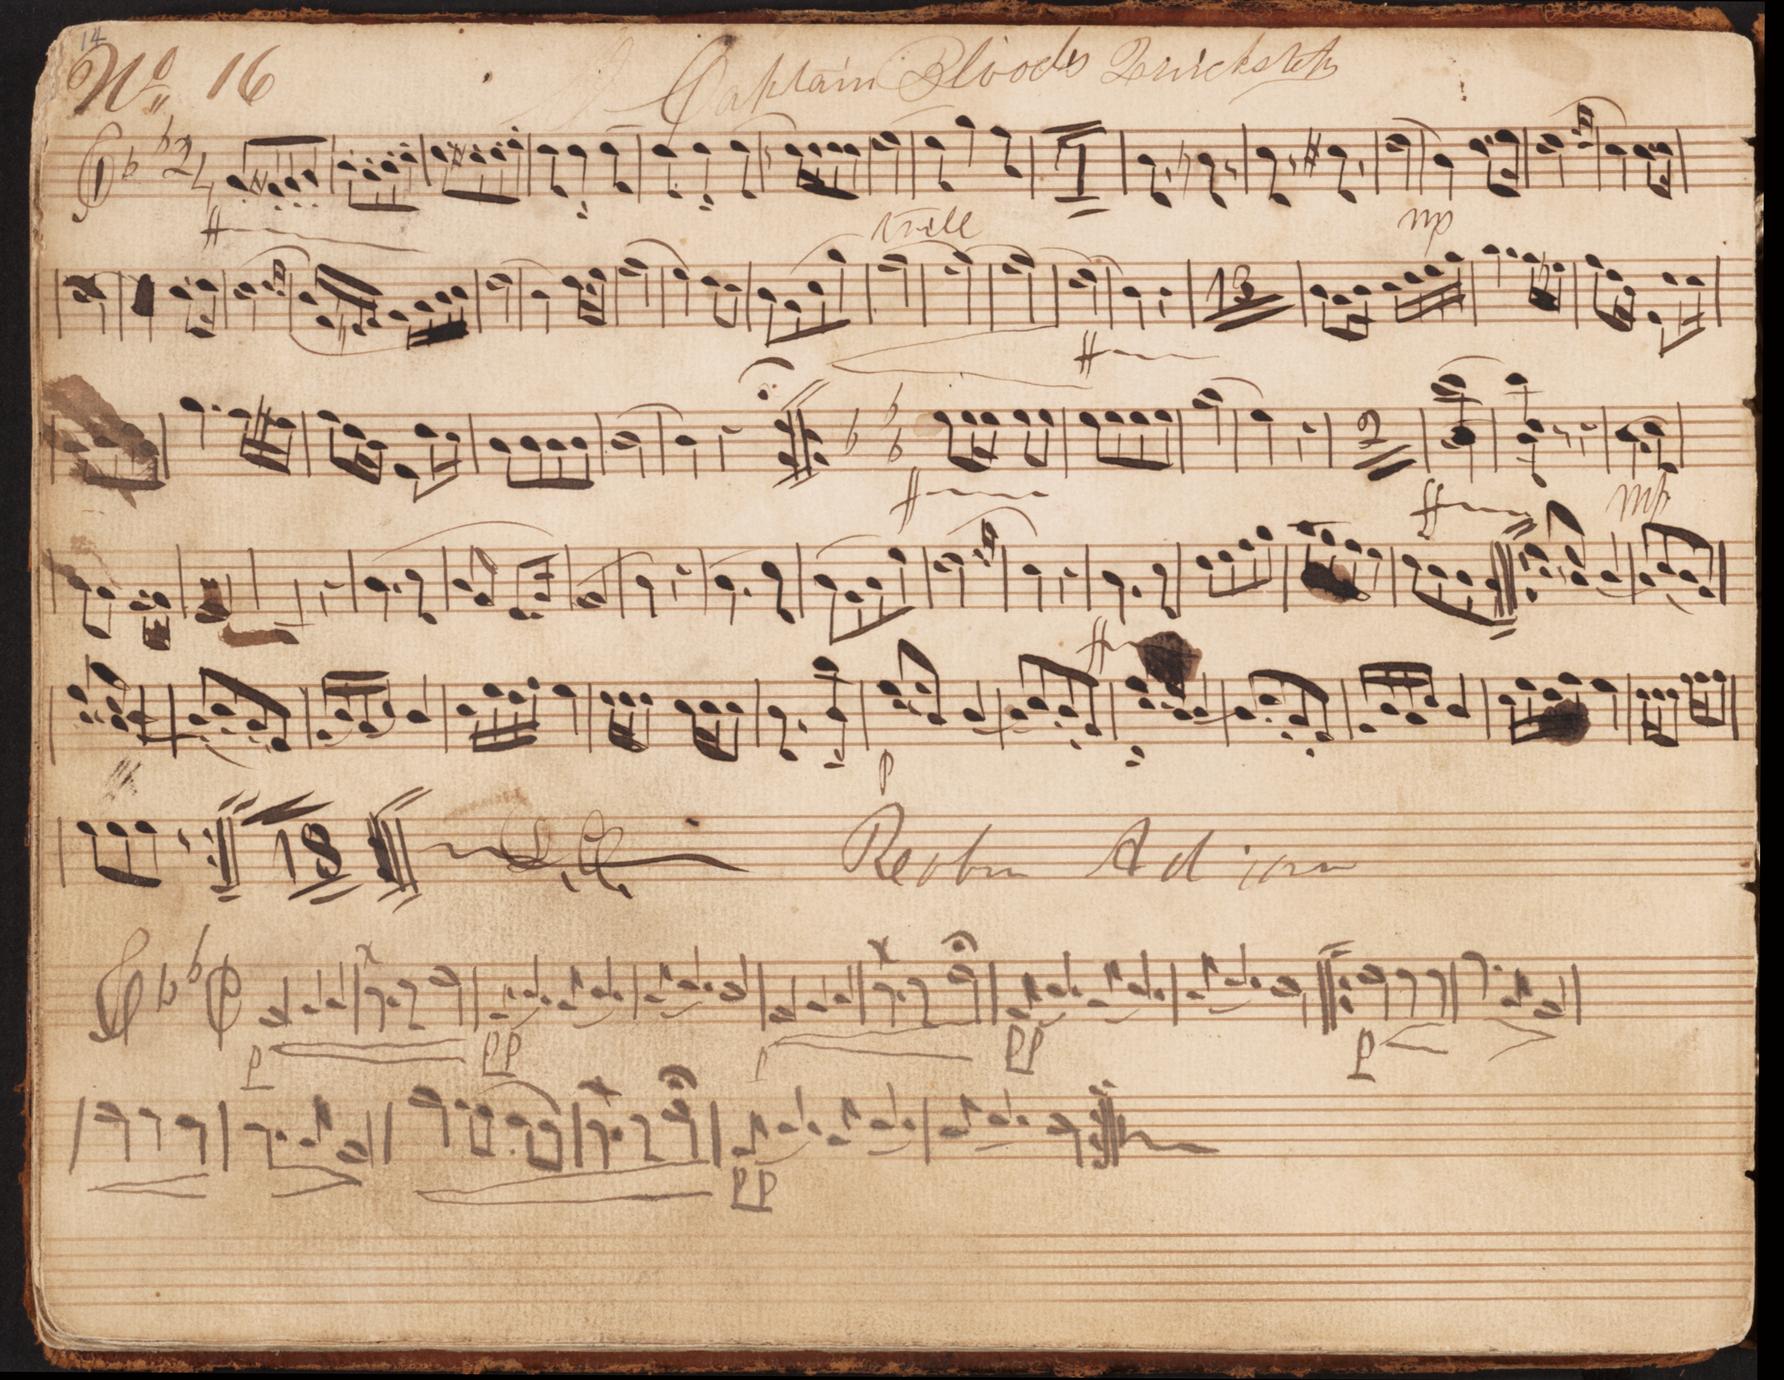 14
No 16 Captain Bloods Quickstep
24
ff
trill
mp
13
ff
6
2
ff
ff
mp
ff
p
18
D.C.
Robin Adiar
p pp p pp p
pp